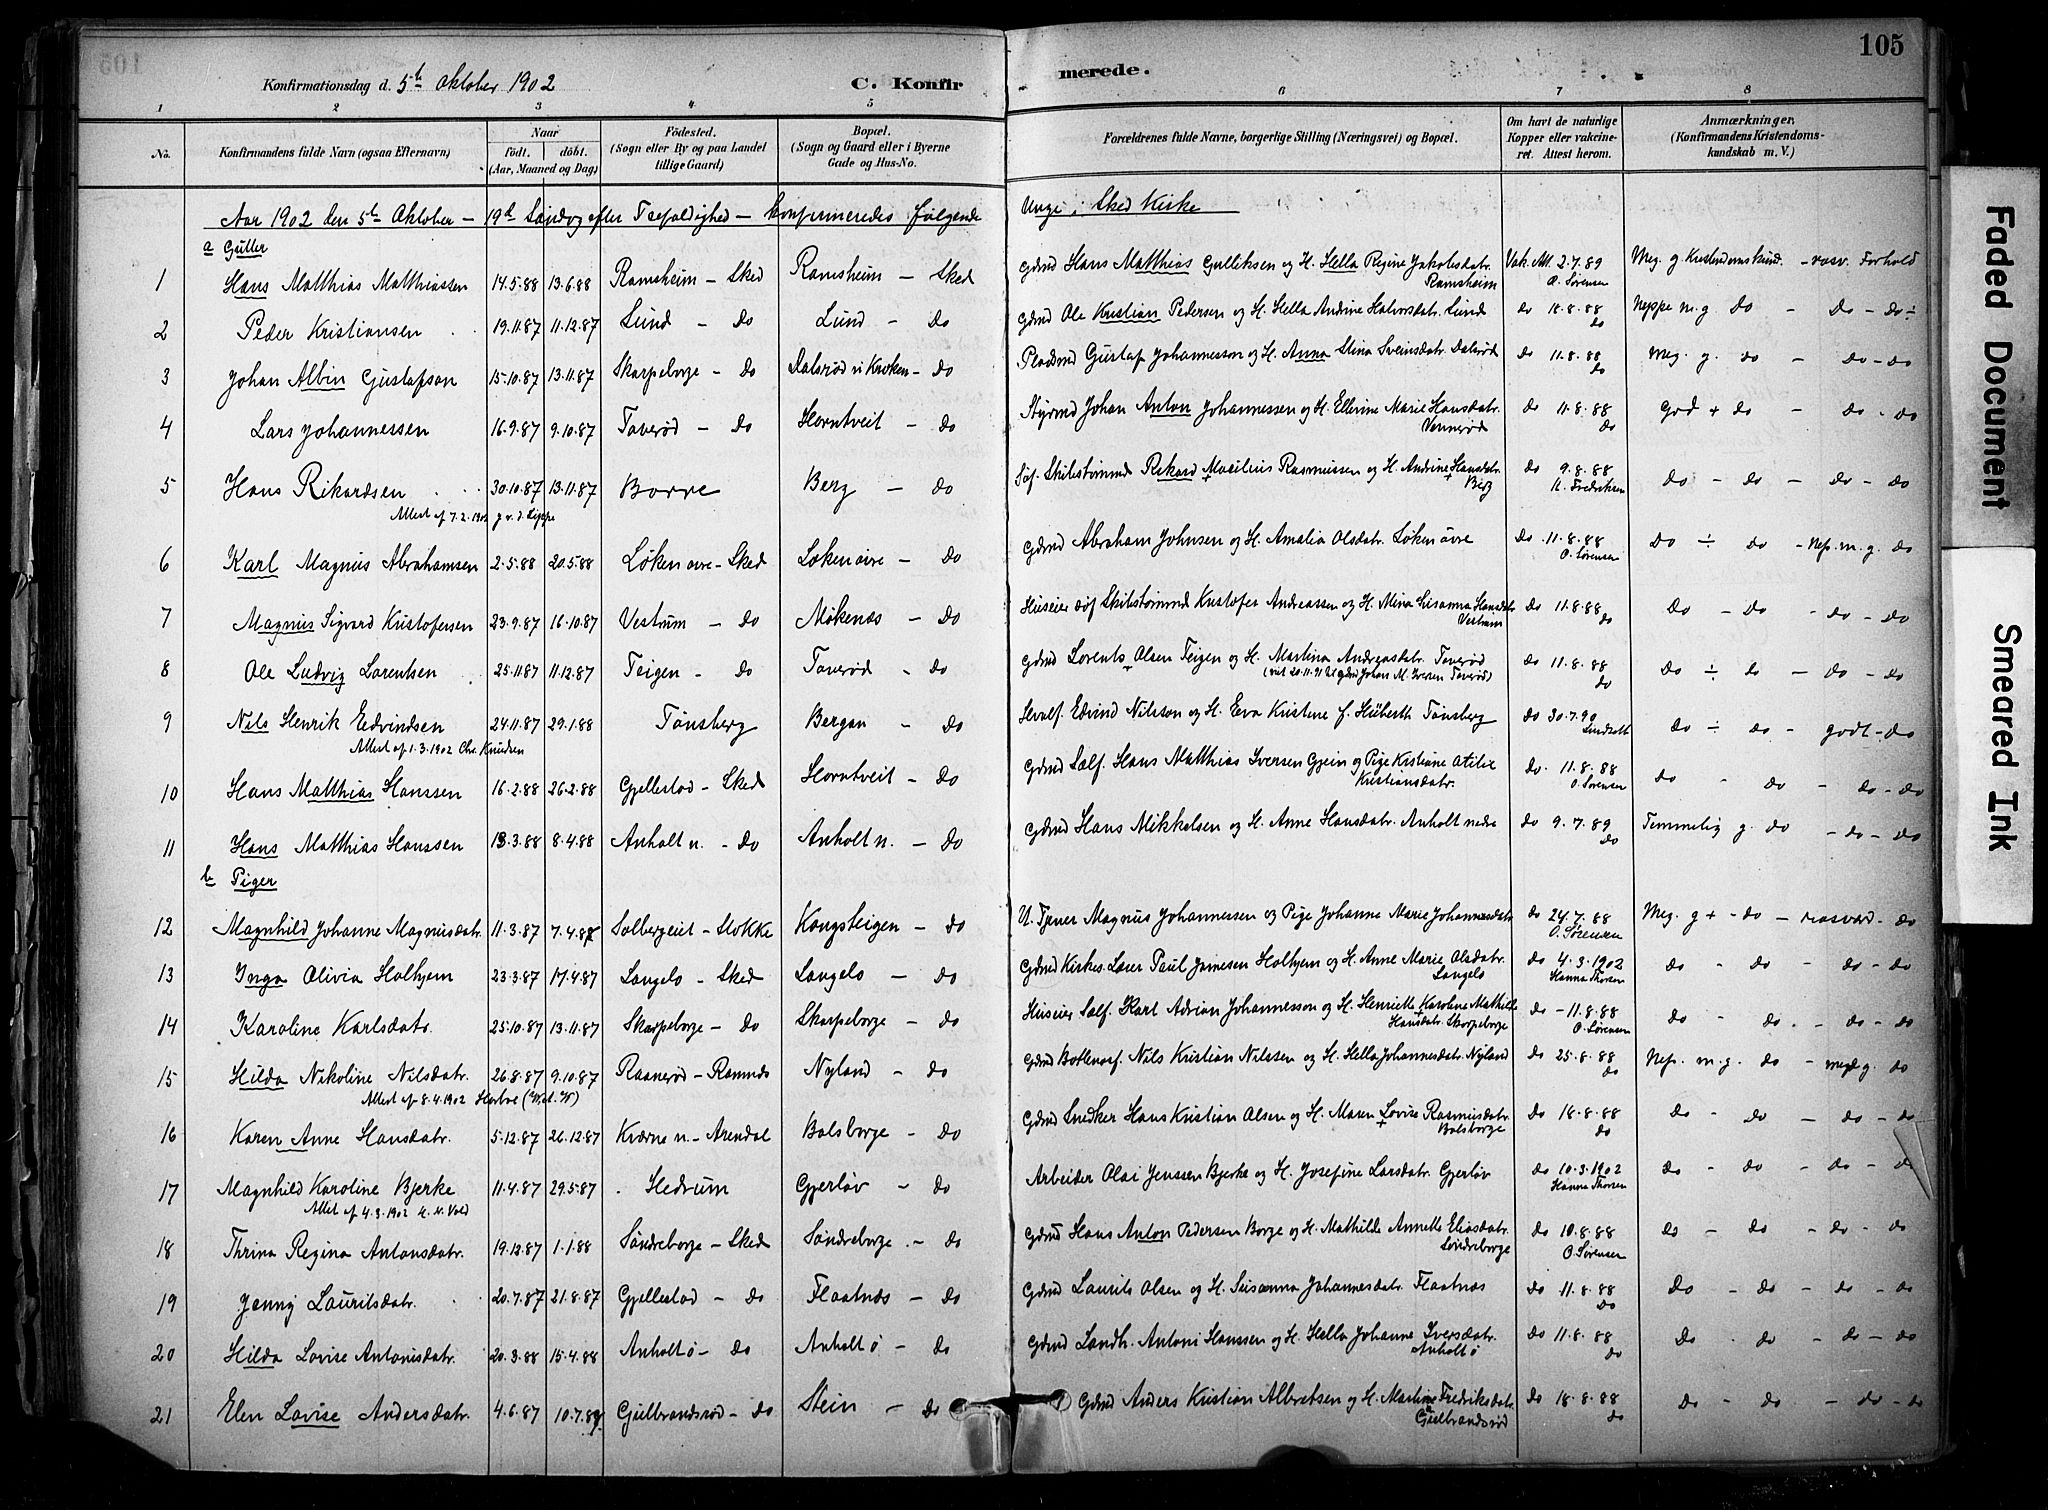 105
Konfirmationsdag d. 5te Oktober 1902
C. Konfirmerede.
1 2 3 4 5 6 7 8
No.
Konfirmandens fulde Navn (ogsaa Efternavn)
Naar
födt. döbt.
(Aar, Maaned og Dag)
Födested.
(Sogn eller By og paa Landet
tillige Gaard)
Bopæl.
(Sogn og Gaard eller i Byerne
Gade og Hus-No.
Forældrenes fulde Navne, borgerlige Stilling (Næringsvei) og Bopæl.
Om havt de naturlige
Kopper eller vakcine-
ret. Attest herom.
Anmærkninger.
(Konfirmandens Kristendoms-
kundskab m. V.)
Aar 1902 den 5te Oktober – 19de Søndag efter Trefoldighed – konfirmeredes følgende Unge i Skee Kirke
a Gutter
1 Hans Matthias Matthiassen 14.5.88 13.6.88 Ramsheim – Sked Ramsheim – Sked Gdmd Hans Matthias Gulliksen og H. Hella Regine Jakobsdatr. Ramsheim Vak. Att. 2.7.89 O. Sørensen Meg. g. Kristendomskund. – rosv. Forhold
2 Peder Kristiansen 19.11.87 11.12.87 Lund – do Lund – do Gdmd Ole Kristian Pedersen og H. Hella Andrine Halvorsdatr. Lund do 18.8.88 do Neppe m.g do – do – do ÷
3 Johan Albin Gustafson 15.10.87 13.11.87 Skarpeborge – do Dalsrød i Kroken – do Pladsmd Gustaf Johannesson og H. Anna Stina Sveinsdatr. Dalsrød do 11.8.88 do Meg. g. do – do – do
4 Lars Johannessen 16.9.87 9.10.87 Taverød – do Horntveit – do Styrmd Johan Anton Johannessen og H. Ellerine Marie Hansdatr. Vennerød do 11.8.88 do God + do – do – do
5 Hans Rikardsen 30.10.87 13.11.87 Borre Berg – do Søf. Skibstømmd Rikard Macilius Rasmussen og H. Andrine Hansdatr. Berg do 9.8.88 K. Fredriksen do – do – do – do
Attest af 7.2.1902 J v. d. Lippe
6 Karl Magnus Abrahamsen 2.5.88 20.5.88 Løken øvre – Sked Løken øvre – do Gdmd Abraham Johnsen og H. Amalia Olsdatr. Løken øvre do 11.8.88 O. Sørensen do ÷ do – Nep. m. g. do
7 Magnus Sigvard Kristofersen 23.9.87 16.10.87 Vestrum – do Møkenes – do Huseier Søf Skibstømmd Kristofer Andreassen og H. Mina Susanna Hansdatr Vestrum do 11.8.88 do do – do – do – do
8 Ole Ludvig Larentsen 25.11.87 11.12.87 Teigen – do Taverød – do Gdmd Lorents Olsen Teigen og H. Martina Andreasdatr. Taverød do 11.8.88 do do ÷ do – do – do
9 Nils Henrik Edvindsen 24.11.87 29.1.88 Tønsberg Bergan – do Hvalf. Edvind Nilsson og H. Eva Kristine f. Hüberth Tønsberg do 30.7.90 do ÷ do – godt – do
Attest af 1.3.1902 Chr. Knudsen
10 Hans Matthias Hanssen 16.2.88 26.2.88 Gjellestad – Sked Horntveit – do Gdmd Sælf. Hans Matthias Iversen Gjein og Pige Kristiane Otilie Kristiansdatr. do 11.8.88 O. Sørensen do – do – do – do
11 Hans Matthias Hanssen 13.3.88 8.4.88 Anholt n. – do Anholt n. – do Gdmd Hans Mikkelsen og H. Anne Hansdatr. Anholt nedre do 9.7.89 do Temmelig g. do – do – do
b Piger
12 Magnhild Johanne Magnusdatr. 11.3.87 7.4.87 Solbergeiet – Stokke Kongsteigen – do U. Tjener Magnus Johannessen og Pige Johanne Marie Johannesdatr do 24.7.88 O. Sørensen Meg. g + – do – rosværd – do
13 Inga Olivia Holhjem 23.3.87 17.4.87 Langelo – Sked Langelo – do Gdmd Kirkes. Lærer Paul Jørnesen Holhjem og H. Anne Marie Olsdatr. Langelo do 4.3.1902 Hanna Thorsen do – do – do – do
14 Karoline Karlsdatr. 25.10.87 13.11.87 Skarpeborge – do Skarpeborge – do Huseier Sælf. Karl Adrian Johannesson og H. Henriette Karoline Mathilde Hansdatr. Skarpeborge do – 11.8.88 O. Sørensen do – do – do – do
15 Hilda Nikoline Nilsdatr. 26.8.87 9.10.87 Raanerød – Ramnæs Nyland – do Gdmd Bottlenosf. Nils Kristian Nilssen og H. Hella Johannesdatr. Nyland do 25.8.88 do Nep. m. g. do – meget g. do
Attest af 8.4.1902 Harboe
16 Karen Anne Hansdatr. 5.12.87 26.12.87 Kværne n. – Arendal Bolsborge – do Gdmd Snedker Hans Kristian Olsen og H. Maren Lovise Rasmusdatr. Bolsborge do 18.8.88 do do – do – do – do
17 Magnhild Karoline Bjerke 11.4.87 29.5.87 Hedrum Gjerløv – do Arbeider Olai Jenssen Bjerke og H. Josefine Larsdatr. Gjerløv do 10.3.1902 Hanna Thorsen do – do – do – do
Attest af 4.3.1902
18 Thrina Regina Antonsdatr. 19.12.87 1.1.88 Søndreborge – Sked Søndreborge – do Gdmd Hans Anton Pedersen Borge og H. Mathilde Annette Eliasdatr. Søndreborge do 10.8.88 O. Sørensen do – do – do – do
19 Jenny Lauritsdatr. 20.7.87 21.8.87 Gjellestad – do Flaatnæs – do Gdmd Laurits Olsen og H. Susanna Johannesdatr. Flaatnæs do 11.8.88 do do – do – do – do
20 Hilda Lovise Antonisdatr. 20.3.88 15.4.88 Anholt ø – do Anholt ø – do Gdmd Landh. Antoni Hanssen og H. Hella Johanne Iversdatr. Anholt ø do 11.8.88 do do – do – do – do
21 Elen Lovise Andersdatr. 4.6.87 10.7.87 Gulbrandsrød – do Stein – do Gdmd Anders Kristian Albretsen og H. Martine Fredriksdatr. Gulbrandsrød do 18.8.88 do do – do – do – do
Faded Document
Smeared Ink